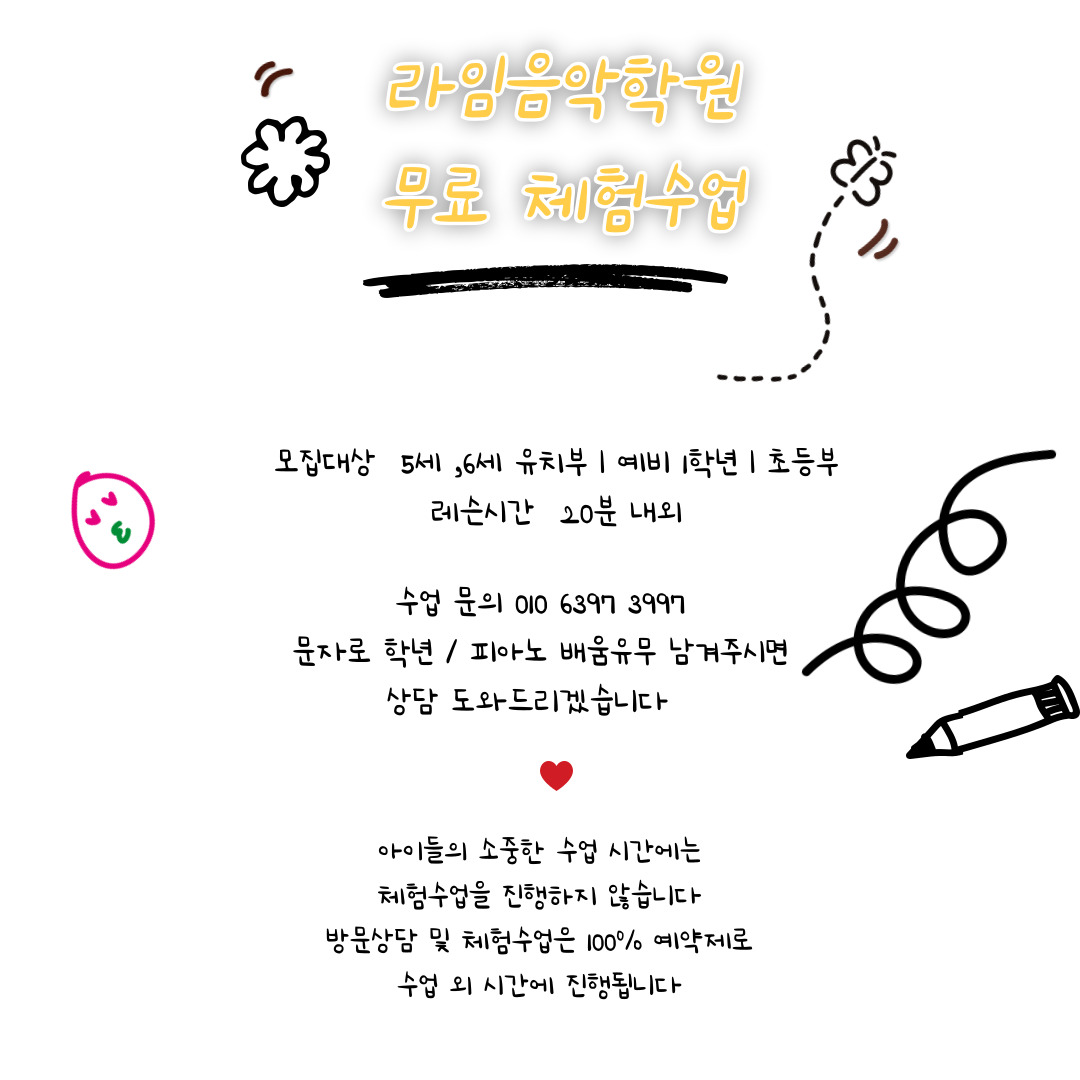 라임음악학원
무료 체험수업
모집대상 5세 ,6세 유치부 | 예비 1학년 | 초등부
레슨시간 20분 내외
수업 문의 010 6397 3997
문자로 학년 / 피아노 배움유무 남겨주시면
상담 도와드리겠습니다
아이들의 소중한 수업 시간에는
체험수업을 진행하지 않습니다
방문상담 및 체험수업은 100% 예약제로
수업 외 시간에 진행됩니다